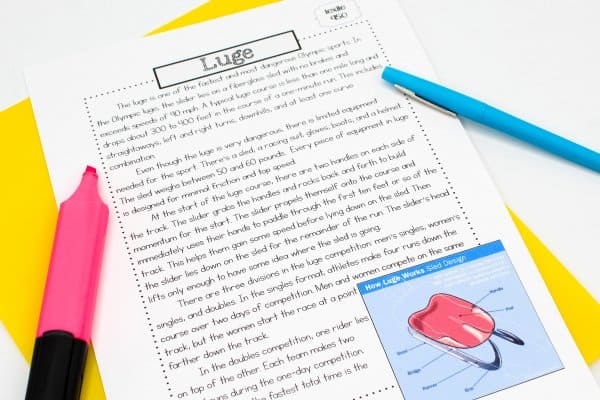 lexile
950
Luge
The luge is one of the fastest and most dangerous Olympic sports. In
the Olympic luge, the slider lies on a fiberglass sled with no brakes and
exceeds speeds of 90 mph. A typical luge course is less than one mile long and
drops about 300 to 400 feet in the course of a one-minute run. This includes
straightaways, left and right turns, downhills, and at least one curve
combination.
Even though the luge is very dangerous, there is limited equipment
needed for the sport. There's a sled, a racing suit, gloves, boots, and a helmet.
The sled weighs between 50 and 60 pounds. Every piece of equipment in luge
is designed for minimal friction and top speed.
At the start of the luge course, there are two handles on each side of
the track. The slider grabs the handles and rocks back and forth to build
momentum for the start. The slider propels themself onto the course and
immediately uses their hands to paddle through the first ten feet or so of the
track. This helps them gain some speed before lying down on the sled. Then
the slider lies down on the sled for the remainder of the run. The slider's head
lifts only enough to have some idea where the sled is going.
There are three divisions in the luge competition: men's singles, women's
singles, and doubles. In the singles format, athletes make four runs down the
course over two days of competition. Men and women compete on the same
track, but the women start the race at a point
farther down the track.
In the doubles competition, one rider lies
on top of the other. Each team makes two
runs during the one-day competition.
the fastest total time is the
How Luge Works Sled Design
Handle
Pod
Steel
Bridge
Runner